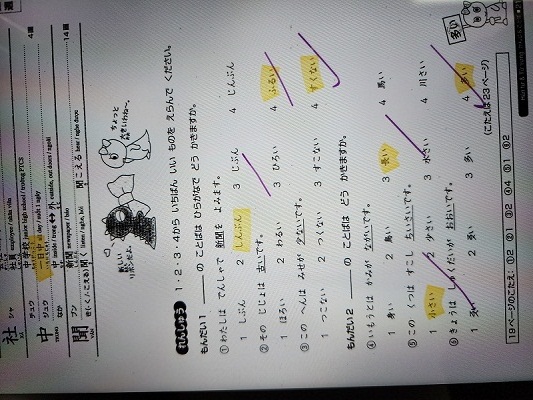 社 シャ 社員 employee / shain
中 チュウ 中学校 junior high school
ジュウ 一日中 all day
なか 中 inside
4画
聞 ブン 新聞 newspaper
き(く・こえる) 聞く
聞こえる
14画
新しい
リボンだよ。
ちょっと
大きいわねー。
れんしゅう
1・2・3・4から いちばん いい ものを えらんで ください。
もんだい1 ＿＿の ことばは ひらがなで どう かきますか。
①わたしは でんしゃで 新聞を よみます。
1 しぶん 2 しんぶん 3 じぶん 4 じんぶん
②その じしょは 古いです。
1 ほろい 2 わるい 3 ひろい 4 ふるい
③この へんは みせが 少ないです。
1 つこない 2 つくない 3 すこない 4 すくない
もんだい2 ＿＿の ことばは どう かきますか。
④いもうとは かみが ながいです。
1 身い 2 鳥い 3 長い 4 馬い
⑤この くつは すこし ちいさいです。
1 小さい 2 少さい 3 水さい 4 川さい
⑥きょうは しゅくだいが おおいです。
4 多い
(こたえは 23 ページ)
19ページのこたえ：
多い